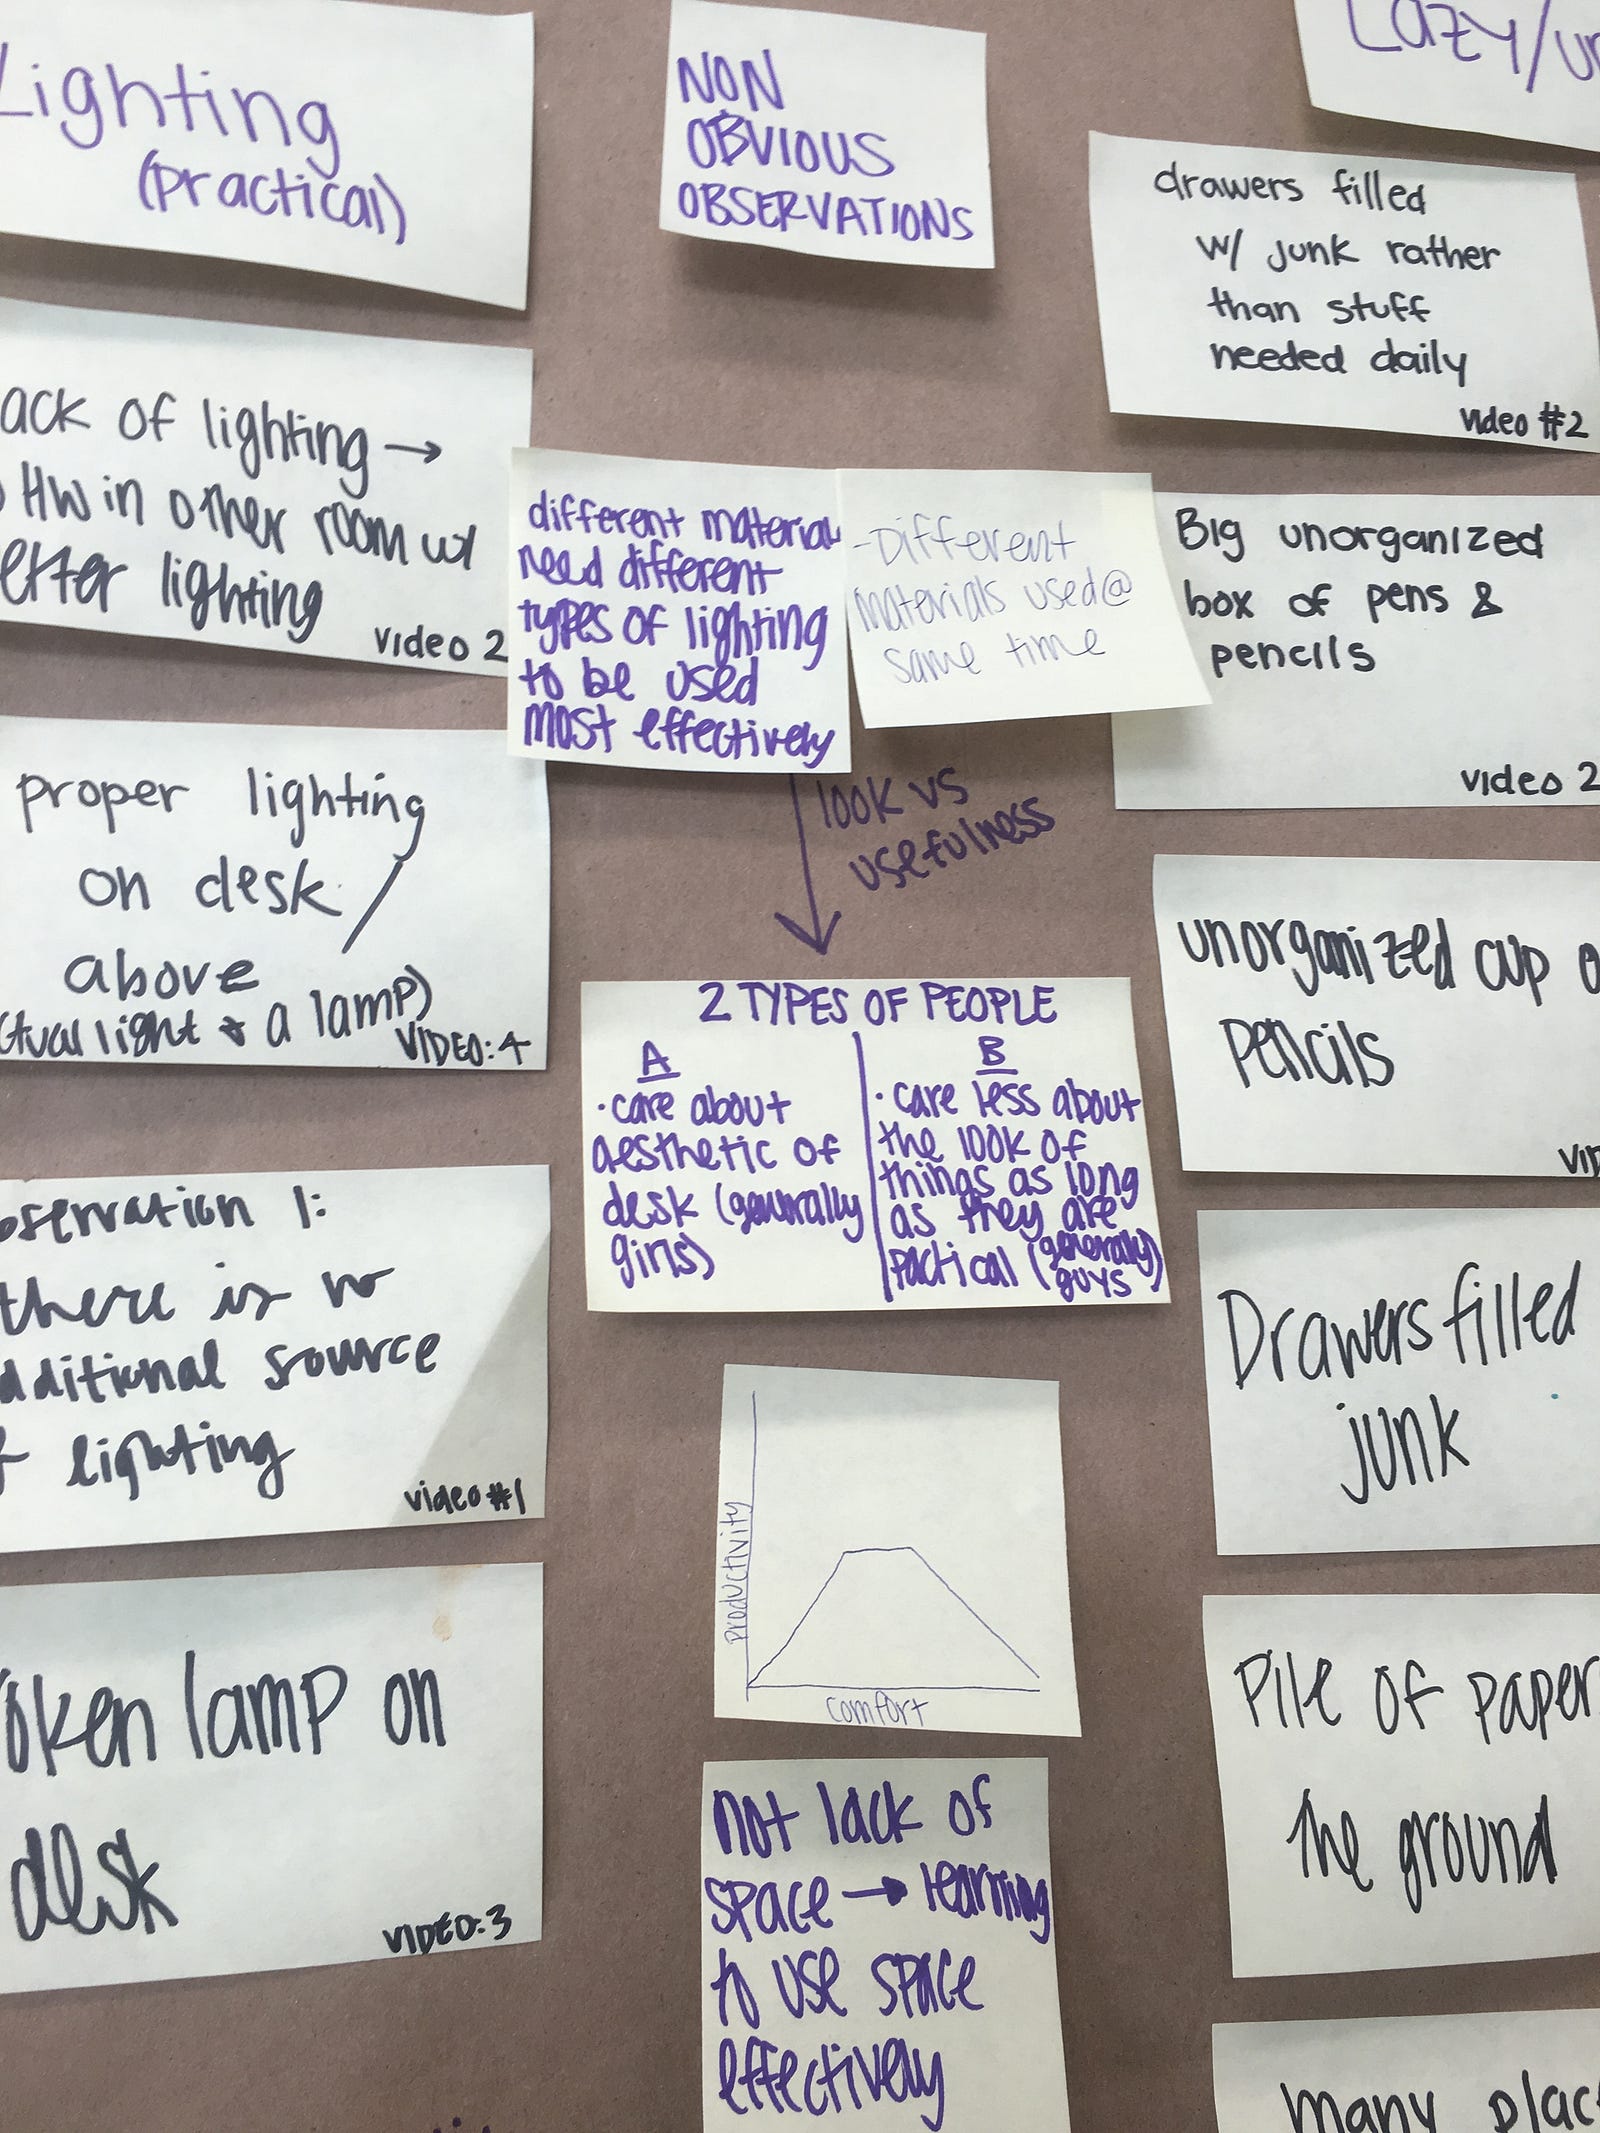 Lighting
(practical)
ack of lighting →
HW in other room w/
etter lighting
Video 2
proper lighting
on desk /
above
ctual light & a lamp)
VIDEO: 4
bservation 1:
there is no
dditional source
f lighting
video #1
oken lamp on
desk
VIDEO: 3
NON
OBVIOUS
OBSERVATIONS
different material
need different
types of lighting
to be used
most effectively
-Different
materials used @
same time
look vs
usefulness
2 TYPES OF PEOPLE
A
• care about
aesthetic of
desk (generally
girls)
B
• care less about
the look of
things as long
as they are
pactical (generally)
guys
productivity
comfort
not lack of
space → learning
to use space
effectively
Lazy/un
drawers filled
w/ junk rather
than stuff
needed daily
Video #2
Big unorganized
box of pens &
pencils
video 2
unorganized cup o
pencils
VID
Drawers filled
junk
Pile of paper
the ground
many plac